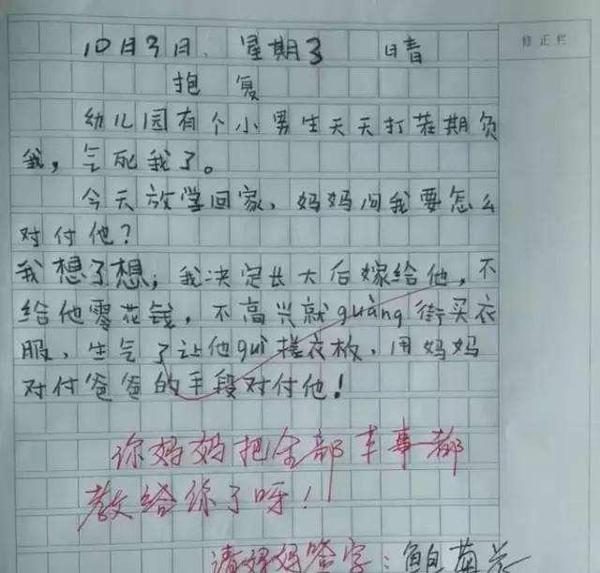 10月3日. 星期3 晴
修正栏
抱 复
幼儿园有个小男生天天打茬期负
我，气死我了。
今天放学回家，妈妈问我要怎么
对付他？
我想了想，我决定长大后嫁给他，不
给他零花钱，不高兴就guàng街买衣
服，生气了让他guì搓衣板，用妈妈
对付爸爸的手段对付他！
你妈妈把全部本事都
教给你了呀！
请妈妈签字：鲍菊